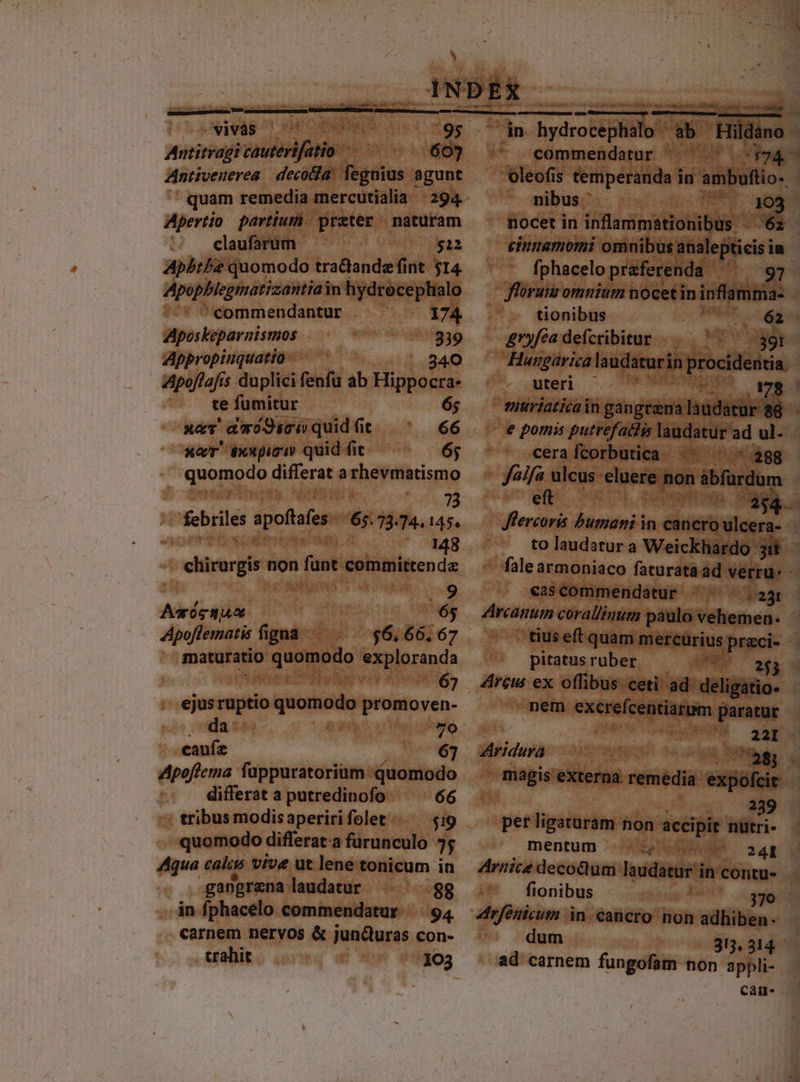 INDEX
vivas 95
Antitragi cauterisatio 607
Antivenerea decocta segnius agunt
quam remedia mercurialia 294
Apertio partium præter naturam
clausarum 522
Aphthæ quomodo tractandæ sint 514
Apophlegmatizantia in hydrocephalo
commendantur 174
Aposkeparnismos 339
Appropinquatio 340
Apostasis duplici sensu ab Hippocra-
te sumitur 65
κατ' ἀπόθεσιν quid sit 66
κατ' ἔκκρισιν quid sit 65
quomodo differat a rhevmatismo
73
febriles apostases 65. 73. 74. 145.
148
chirurgis non sunt committendæ
9
Ἀπόςημα 65
Apostematis signa 56, 66, 67
maturatio quomodo exploranda
67
ejus ruptio quomodo promoven-
da 70
causæ 67
Apostema suppuratorium quomodo
differat a putredinoso 66
tribus modis aperiri solet 519
quomodo differat a furunculo 75
Aqua calcis vivæ ut lene tonicum in
gangræna laudatur 88
in sphacelo commendatur 94
carnem nervos & juncturas con-
trahit 103
in hydrocephalo ab Hildano
commendatur 174
oleosis temperanda in ambustio-
nibus 103
nocet in inflammationibus 62
cinnamomi omnibus analepticis in
sphacelo præferenda 97
florum omnium nocet in inflamma-
tionibus 62
grysea describitur 391
Hungarica laudatur in procidentia
uteri 178
muriatica in gangræna laudatur 86
e pomis putrefactis laudatur ad ul-
cera scorbutica 288
salsa ulcus eluere non absurdum
est 254
stercoris humani in cancro ulcera-
to laudatur a Weickhardo 318
sale armoniaco saturata ad verru-
cas commendatur 231
Arcanum corallinum paulo vehemen-
tius est quam mercurius præci-
pitatus ruber 253
Arcus ex ossibus ceti ad deligatio-
nem excrescentiarum paratur
221
Aridura 283
magis externa remedia exposcit
239
per ligaturam non accipit nutri-
mentum 241
Arnicæ decoctum laudatur in contu-
sionibus 370
Arsenicum in cancro non adhiben-
dum 313. 314
ad carnem fungosam non appli-
can-